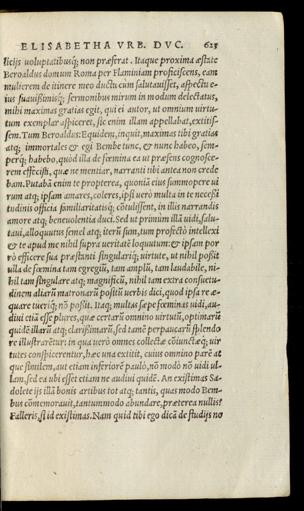 ELISABETHA VRB. DVC. 625
licijs uoluptatibusq́; non præferat. Itaque proxima æstate
Beroaldus domum Roma per Flaminiam proficiscens, eam
mulierem de itinere meo ductu cùm salutauisset, aspectu e-
ius suauissimisq́; sermonibus mirum in modum delectatus,
mihi maximas gratias egit, qui ei autor, ut omnium uirtu-
tum exemplar aspiceret, sic enim illam appellabat, extitis-
sem. Tum Beroaldus: Equidem, inquit, maximas tibi gratias
atq; immortales & egi Bembe tunc, & nunc habeo, sem-
perq́; habebo, quòd illa de fœmina ea ut præsens cognosce-
rem effecisti, quæ ne mentiar, narranti tibi antea non crede
bam. Putabã enim te propterea, quoniã eius summopere ui
rum atq; ipsam amares, coleres, ipsi uerò multa in te necessi
tudinis officia familiaritatisq́; cõtulissent, in illis narrandis
amore atq; beneuolentia duci. Sed ut primum illã uidi, salu-
taui, alloquutus semel atq; iterũ sum, tum profectò intellexi
& te apud me nihil supra ueritatẽ loquutum: & ipsam por
rò efficere sua præstanti singulariq́; uirtute, ut nihil possit
ulla de fœmina tam egregiũ, tam amplũ, tam laudabile, ni-
hil tam singulare atq; magnificũ, nihil tam extra consuetu-
dinem aliarũ matronarũ positũ uerbis dici, quod ipsa re æ-
quare tueriq́; nõ possit. Itaq; multas sæpe fœminas uidi, au-
diui etiã esse plures, quæ certarũ omnino uirtutũ, optimarũ
quidẽ illarũ atq; clarissimarũ, sed tamẽ perpaucarũ splendo
re illustrarẽtur: in qua uerò omnes collectæ cõiunctæq́; uir
tutes conspicerentur, hæc una extitit, cuius omnino parẽ at
que similem, aut etiam inferiorẽ paulò, nõ modò nõ uidi ul-
lam, sed ea ubi esset etiam ne audiui quidẽ. An existimas Sa-
dolete ijs illã bonis artibus tot atq; tantis, quas modo Bem-
bus cõmemorauit, tantummodo abundare, præterea nullis?
Falleris, si id existimas. Nam quid tibi ego dicã de studijs no